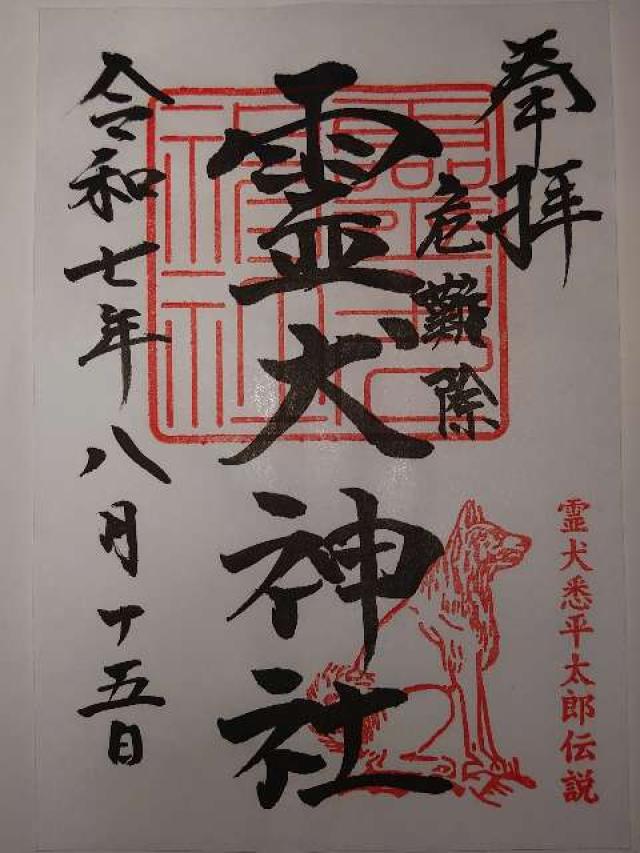 奉拝
危難除
霊犬神社
令和七年八月十五日
霊犬悉平太郎伝説